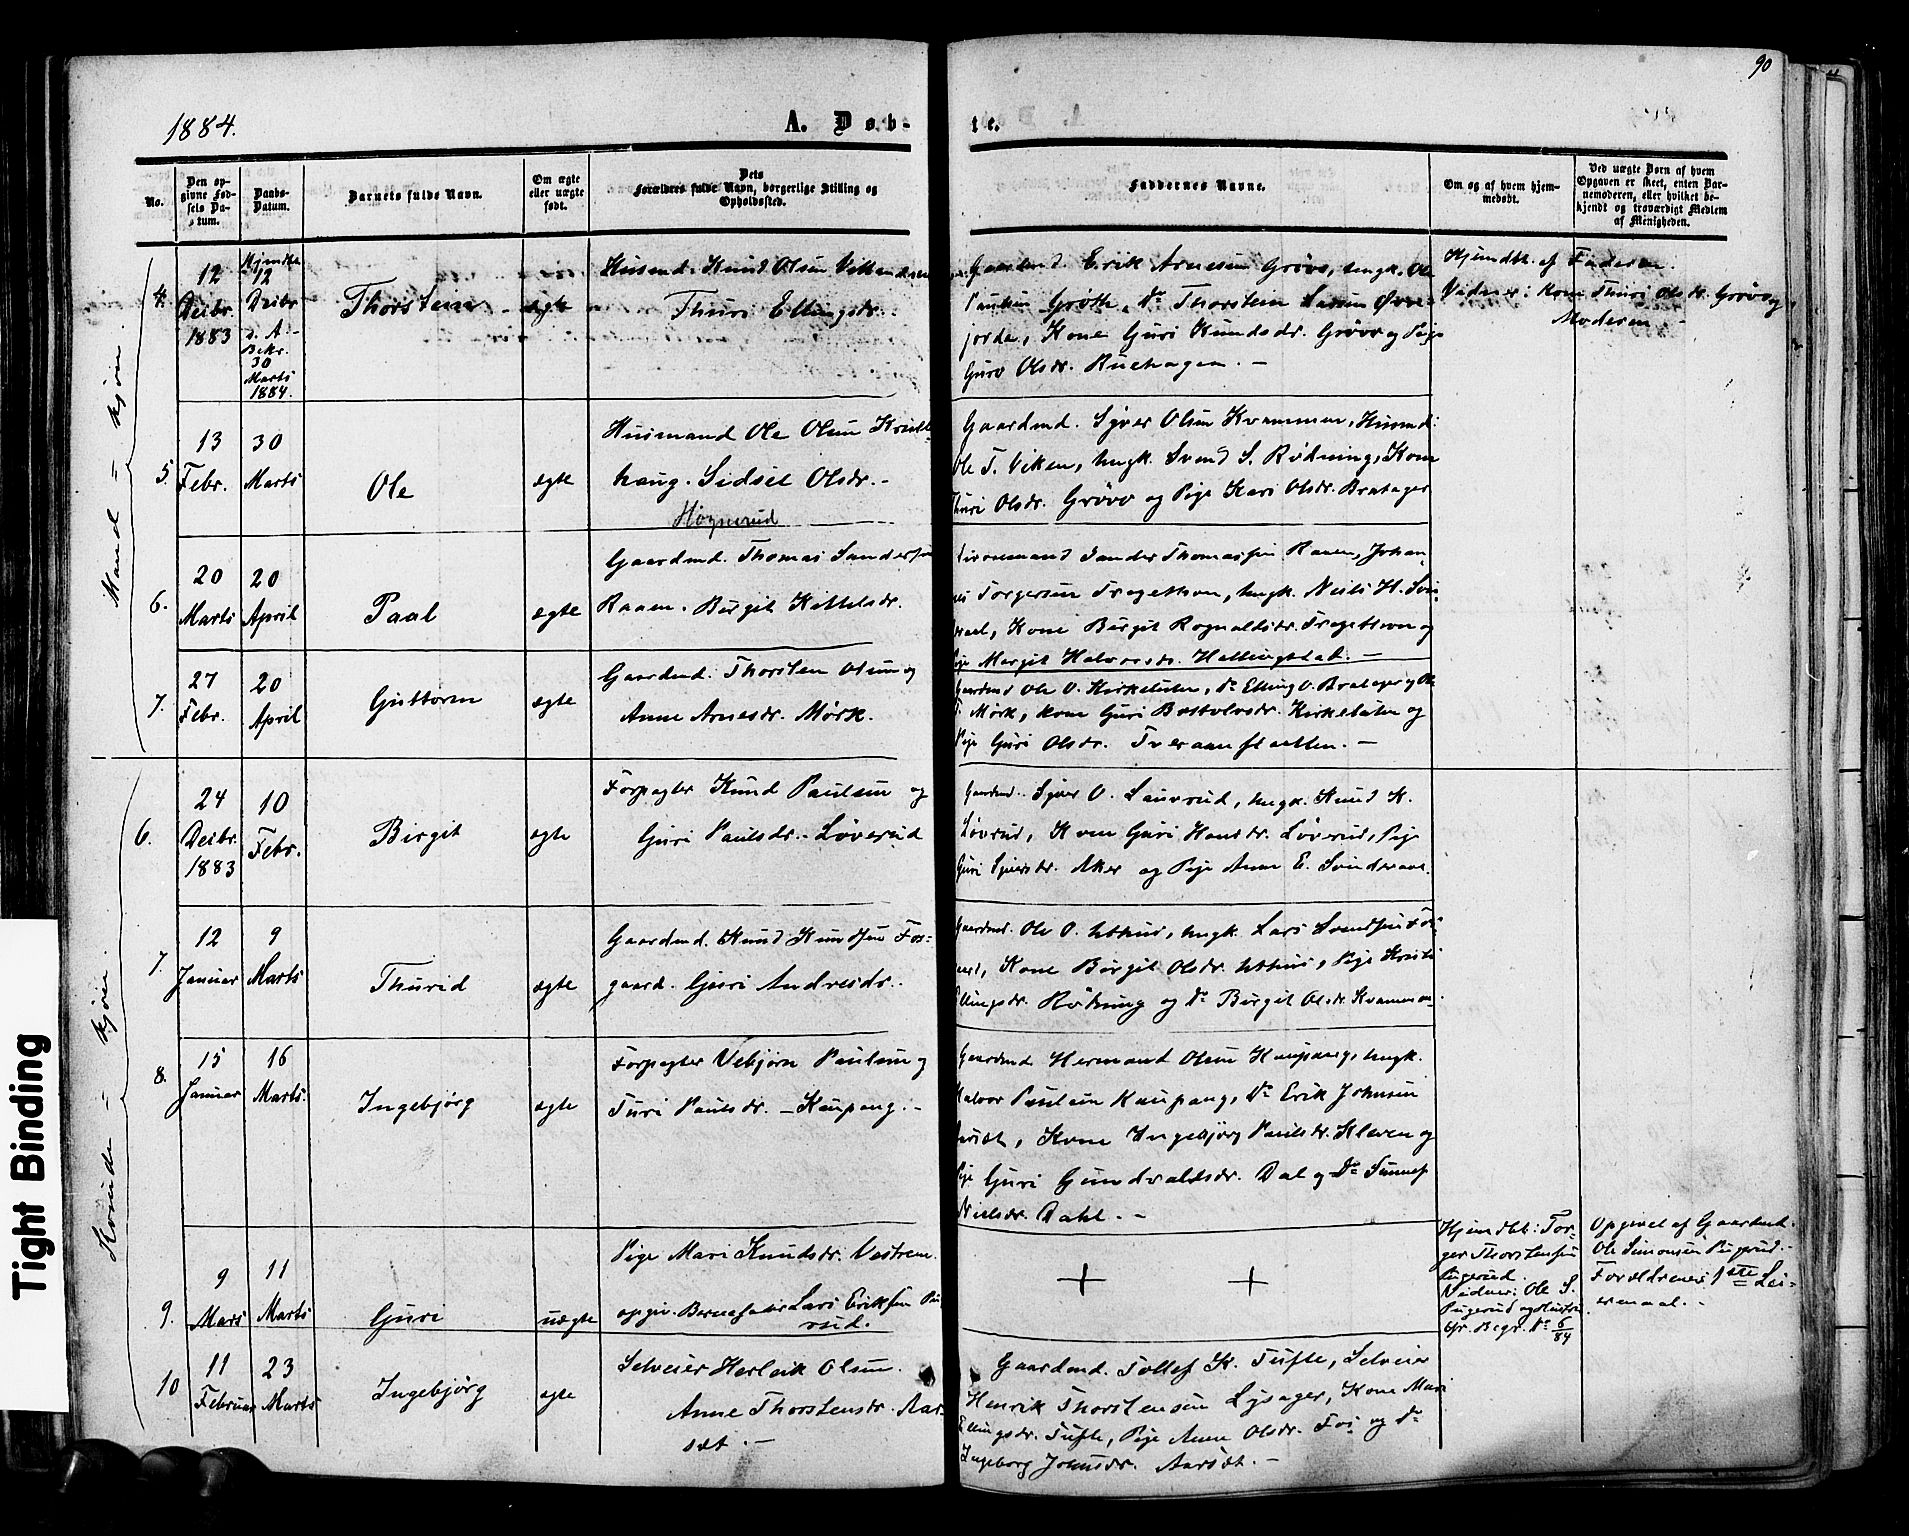 90
1884.
A. Døb-
te.
No.
Den op-
givne Fød-
sels Da-
tum.
Daabs-
Datum.
Barnets fulde Navn.
Om ægte
eller uægte
født.
Dets
Forældres fulde Navn, borgerlige Stilling og
Opholdssted.
Faddernes Navne.
Om og af hvem hjem-
medøbt.
Ved uægte Børn af hvem
Opgaven er skeet, enten Bar-
nemoderen, eller hvilket be-
kjendt og troværdigt Medlem
af Menigheden.
Mand = kjøn.
4.
12
Decbr.
1883
Hjemdbt.
12
Decbr.
s. A.
Bekr.
30
Marts
1884.
Thorstein
ægte
Husmd. Knud Olsen
Thuri Ellingsdr.
Gaardmd. Erik Arnesen Grøvo, Ungk. Ole
Paulsen Grøth, Do Thorstein Larsen Øvre-
jorde, Kone Guri Knudsdr. Grøvo og Pige
Guro Olsdr. Ruehagen. —
Hjemdbt. af Faderen.
Vidner: Kone Thuri Olsdr. Grøvo og
Moderen —
5.
13
Febr.
30
Marts
Ole
ægte
Husmand Ole Olsen
haug. Sidsel Olsdr. -
Høgnerud
Gaardmd. Sjver Olsen Kvammen, Husmd:
Ole T. Viken, Ungk. Svend S. Rødning, Kone
Thuri Olsdr. Grøvo og Pige Kari Olsdr. Bratager
6.
20
Marts
20
April
Paal
ægte
Gaardmd. Thomas Sandersen
Raaen. Birgit Kittelsdr.
Sander Thomassen Raaen, Johan-
nes Torgersen Tragethon, Ungk. Neils H.
Kone Birgit Rognaldsdr. Tragethon og
Pige Margit Halvorsdr. Hallingstad. —
7.
27
Febr.
20
April
Guttorm
ægte
Gaardmd. Thorsten Olsen og
Anne Arnesdr. Mørk.
Gaardmd Ole O. Kirketeten, Do Elling O. Bratager og Ole
T. Mørk, Kone Guri Bottolvsdr. Kirketeten og
Pige Guri Olsdr. Tveraanslaatten. —
Kvinde = kjøn.
6.
24
Decbr.
1883
10
Febr.
Birgit
ægte
Forpagter Knud Paulsen og
Guri Paulsdr. - Løverud
Gaardmd. Sjver O. Laurud, Ungk. Knud K.
Løvrud, Kone Guri Hansdr. Løverud, Pige
Guri Sjversdr. Aker og Pige Anne E.
7.
12
Januar
9
Marts
Thurid
ægte
Gaardmd. Knud Knudsen Fos-
gaard. Guri Andresdr.
Gaardmd. Ole O. Uthus, Ungk. Lars Svendsen
Kone Birgit Olsdr. Uthus, Pige Kristi
Ellingsdr. Rødning og Do Birgit Olsdr. Kvammen.
8.
15
Januar
16
Marts.
Ingebjørg
ægte
Forpagter Vebjørn Paulsen og
Turi Paulsdr. - Kaupang. -
Gaardmd Hermand Olsen Kaupang, Ungk.
Halvor Paulsen Kaupang, Do Erik Johnsen
Aarset, Kone Ingebjørg Paulsdr. Kleven og
Pige Guri Gundvaldsdr. Dal og Do Sunnef
Nielsdr. Dahl. -
9.
9
Mars
11
Marts
Guri
uægte
Pige Mari Knudsdr. Vestrem.
opgiv. Barnefader Lars Eriksen
rud.
+ +
Hjemdbt: Tor-
ger Thorstensen
Pugerud.
Vidner: Ole S.
Pugerud og Hustru
cfr. Begr. No 6/84
Opgivet af Gaardmd.
Ole Simonsen Pugerud. -
Forældrenes 1ste Lei-
ermaal. -
10
11
Februar
23
Marts
Ingebjørg
ægte
Selveier Herleik Olsen.
Anne Thorstensdr. Aar-
set. —
Gaardmd. Tollef K. Tufte, Selveier
Henrik Thorstensen Lysager, Kone Mari
Ellingsdr. Tufte, Pige Anne Olsdr. Fos og Do
Ingeborg Johnsdr. Aarset. -
Tight Binding